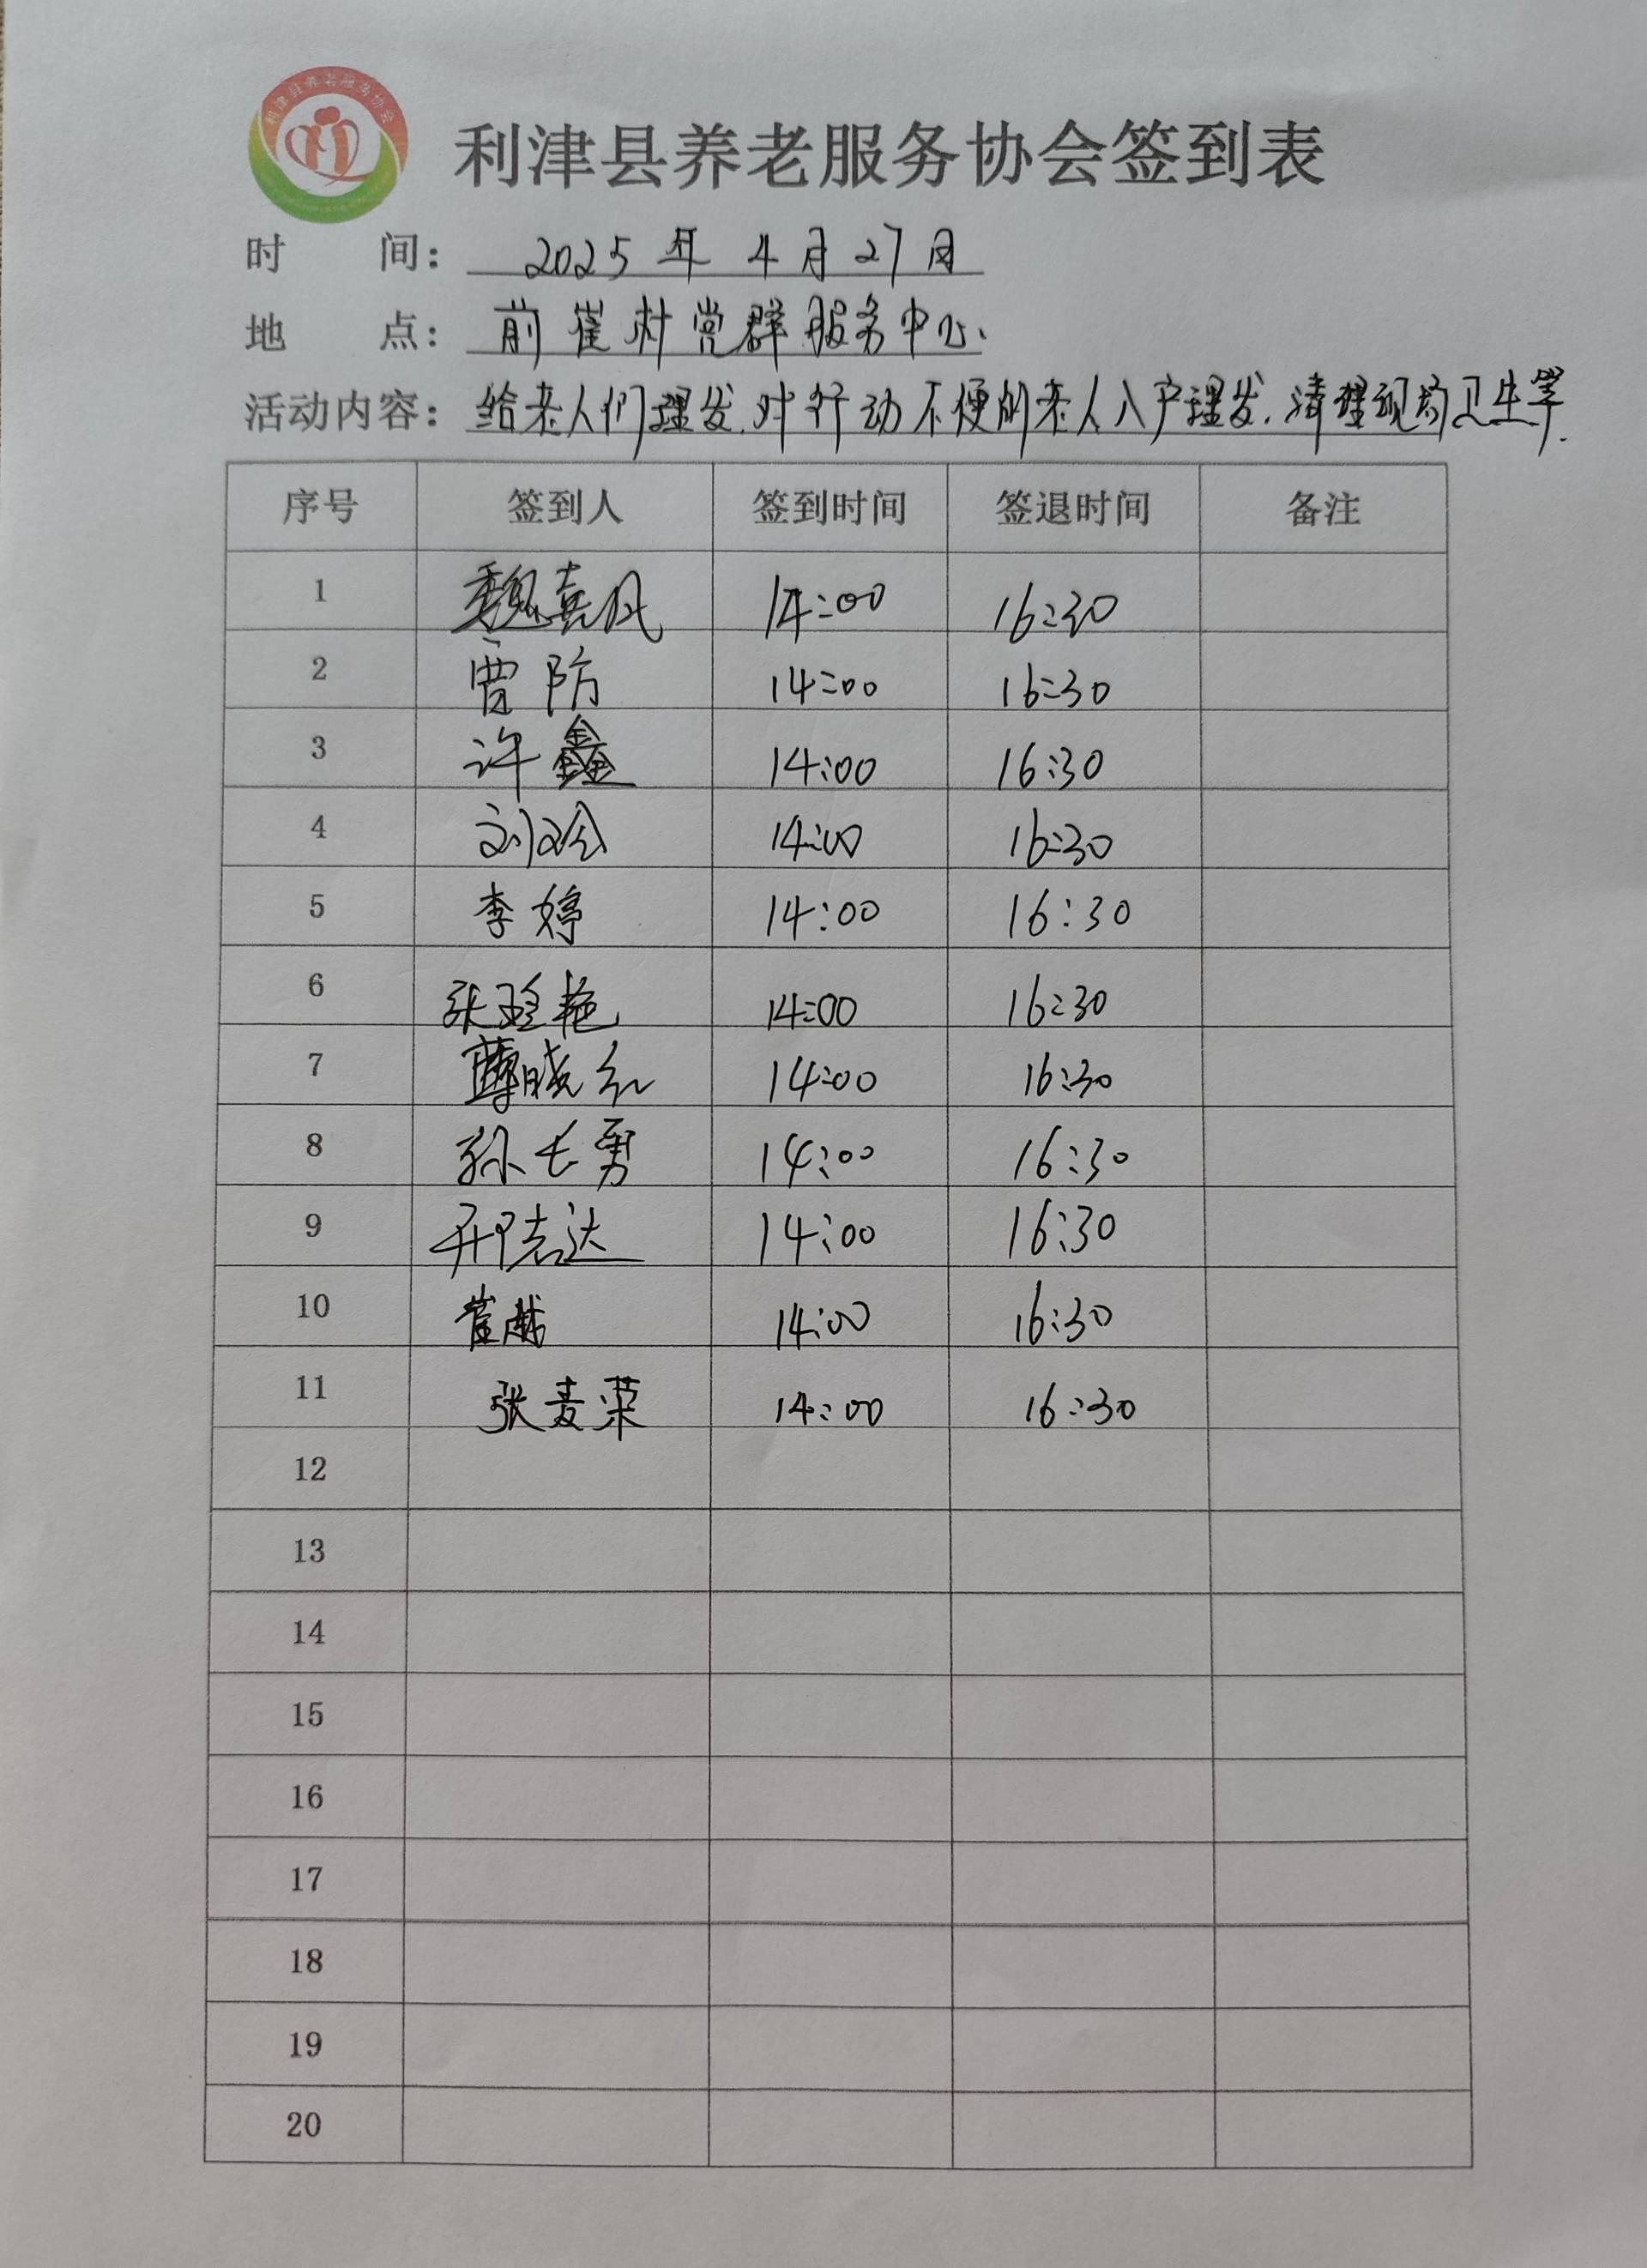 利津县养老服务协会
利津县养老服务协会签到表
时 间： 2025年4月27日
地 点： 前崔村党群服务中心
活动内容： 给老人们理发.对行动不便的老人入户理发.清理现场卫生等.
序号 签到人 签到时间 签退时间 备注
1 魏真风 14:00 16:30
2 曹防 14:00 16:30
3 许鑫 14:00 16:30
4 刘 14:00 16:30
5 李婷 14:00 16:30
6 张 艳 14:00 16:30
7 薄晓红 14:00 16:30
8 孙长勇 14:00 16:30
9 邢志达 14:00 16:30
10 崔越 14:00 16:30
11 张麦荣 14:00 16:30
12
13
14
15
16
17
18
19
20